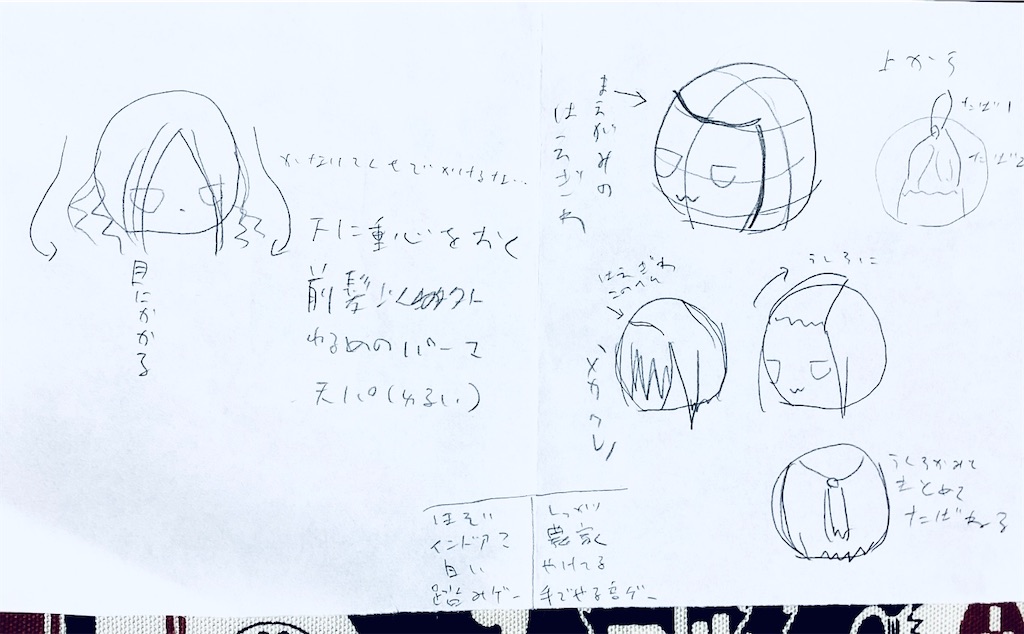 目にかかる
天に重心をおく
前髪
ゆるめのパーマ
天パ(ゆるい)
まえがみの
はえぎわ
上から
たば1
たば2
はえぎわ
このへん
メカクレ
うしろに
うしろがみで
まとめて
たばねる
ほそい
インドア
白い
足踏みゲー
しっかり
農家
やけてる
手でやる音ゲー